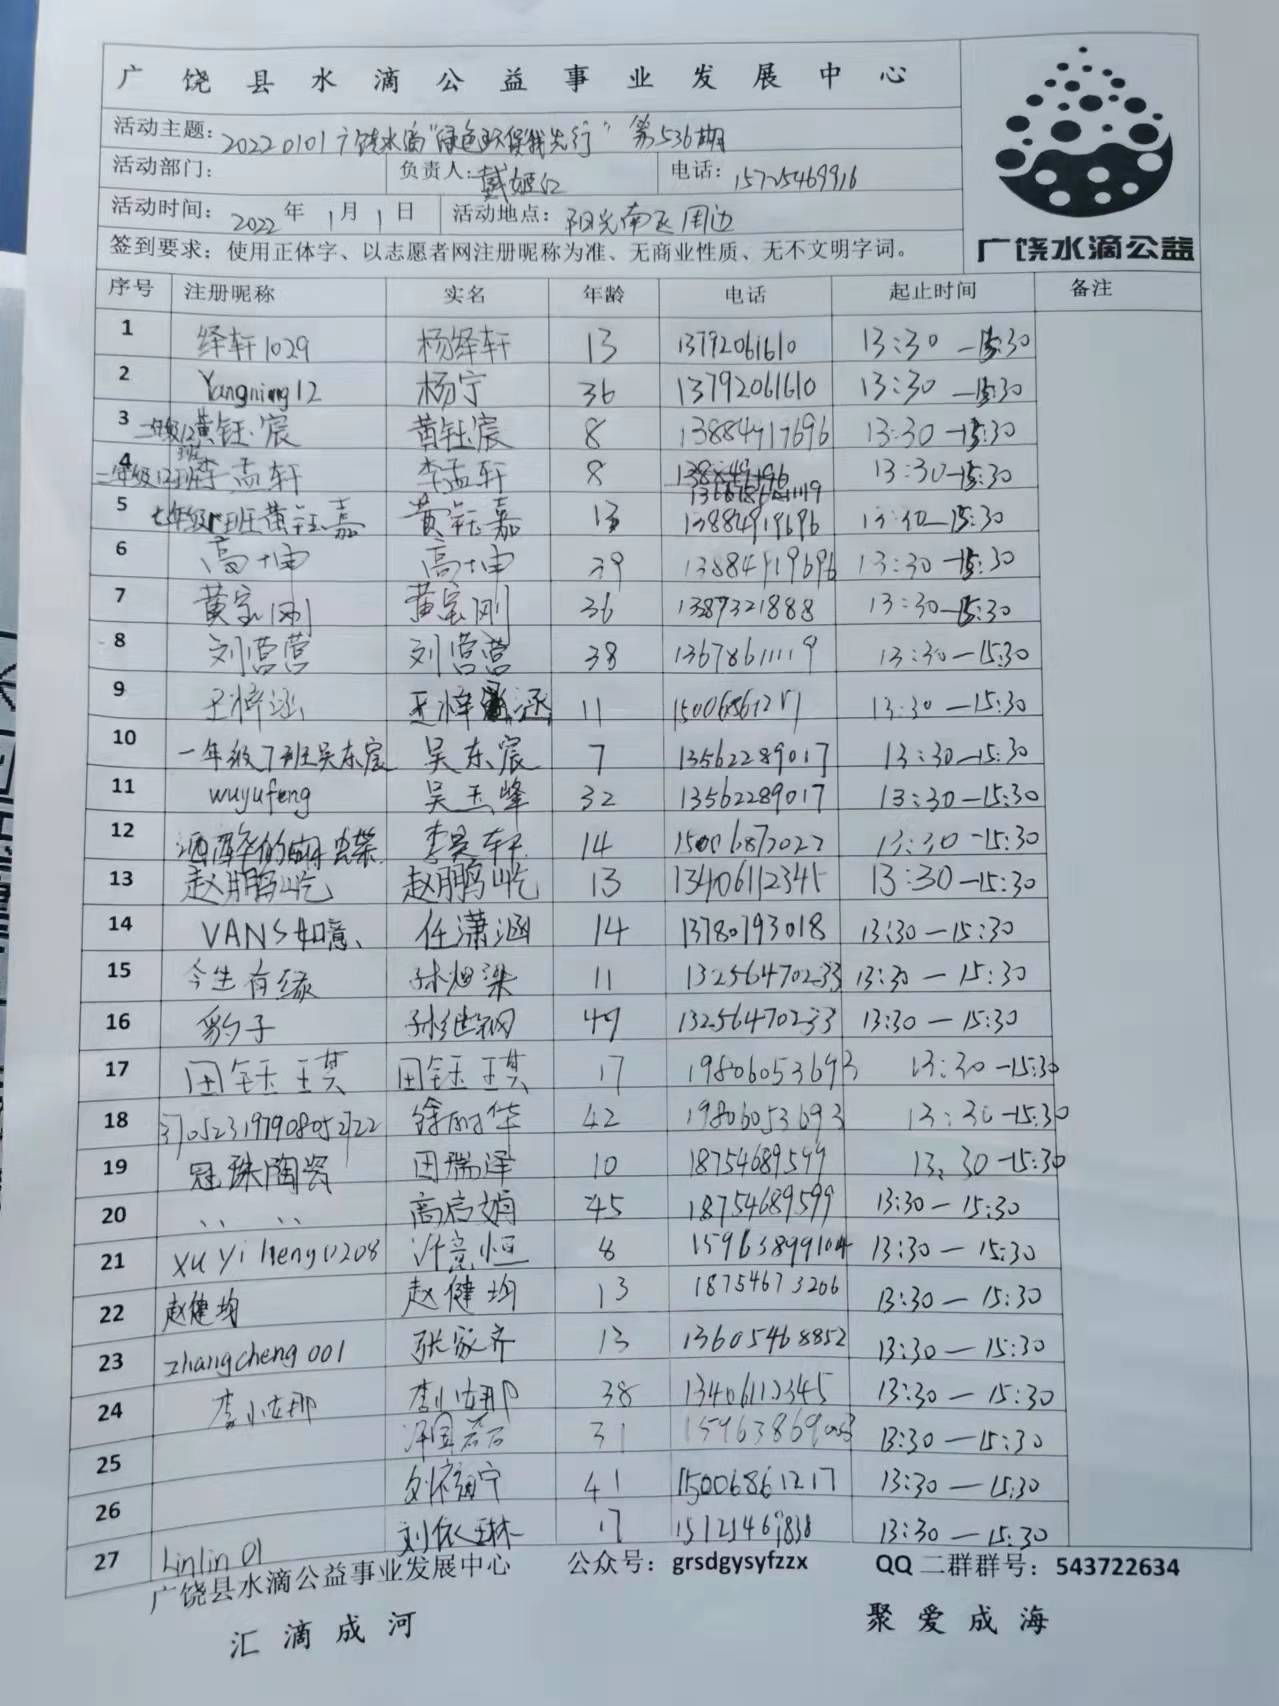 广饶县水滴公益事业发展中心
活动主题：20220101广饶水滴"绿色环保我先行"第536期
活动部门： 负责人：戴姬红 电话：15725469916
活动时间：2022年1月1日 活动地点：阳光南区周边
签到要求：使用正体字、以志愿者网注册昵称为准、无商业性质、无不文明字词。
广饶水滴公益
序号 注册昵称 实名 年龄 电话 起止时间 备注
1 绎轩1029 杨绎轩 13 13792061610 13:30—15:30
2 Yangning12 杨宁 36 13792061610 13:30—15:30
3 二年级12班黄钰宸 黄钰宸 8 13:30—15:30
4 二年级12班李孟轩 李孟轩 8 13678611119 13:30—15:30
5 黄钰嘉 黄钰嘉 13 13884919696 13:30—15:30
6 高坤 高坤 39 13884919696 13:30—15:30
7 黄宝刚 黄宝刚 36 1389321888 13:30—15:30
8 刘营营 刘营营 38 13678611119 13:30—15:30
9 王梓涵 王梓涵 11 15006861217 13:30—15:30
10 一年级7班吴东宸 吴东宸 7 13562289017 13:30—15:30
11 wuyufeng 吴玉峰 32 13562289017 13:30—15:30
12 李昊轩 14 15006872022 13:30—15:30
13 赵鹏屹 赵鹏屹 13 13406112345 13:30—15:30
14 VANS如意、 任潇涵 14 13780793018 13:30—15:30
15 今生有缘 11 13256470233 13:30—15:30
16 豹子 孙继钢 49 13256470233 13:30—15:30
17 田钰琪 田钰琪 17 19806053693 13:30—15:30
18 370523197908052722 徐丽华 42 19806053693 13:30—15:30
19 冠珠陶瓷 田瑞泽 10 18754689599 13:30—15:30
20 、、 、、 高启娟 45 18754689599 13:30—15:30
21 xu yi heng0208 许意恒 8 15963899104 13:30—15:30
22 赵健均 赵健均 13 18754673206 13:30—15:30
23 zhangcheng001 张家齐 13 13605468852 13:30—15:30
24 李小娜 李小娜 38 13406112345 13:30—15:30
25 31 13:30—15:30
26 41 15006861217 13:30—15:30
27 Linlin01 刘依琳 17 13:30—15:30
广饶县水滴公益事业发展中心 公众号：grsdgysyfzzx QQ二群群号：543722634
汇滴成河 聚爱成海